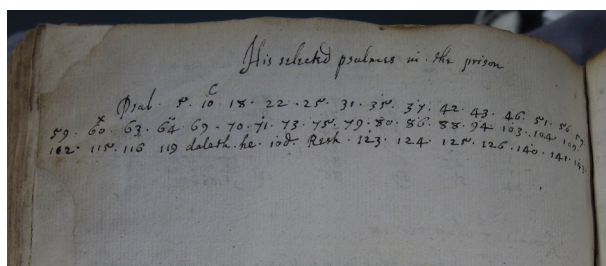 His selected psalmes in the prison
Psal. 5. 10 18. 22. 25. 31. 35. 37. 42. 43. 46. 51. 56. 57
59. 60. 63. 64. 69. 70. 71. 73. 75. 79. 80. 86. 88. 94 103. 104 109
112. 115. 116 119 daleth. he. iod. Resh. 123. 124. 125. 126. 140. 141.